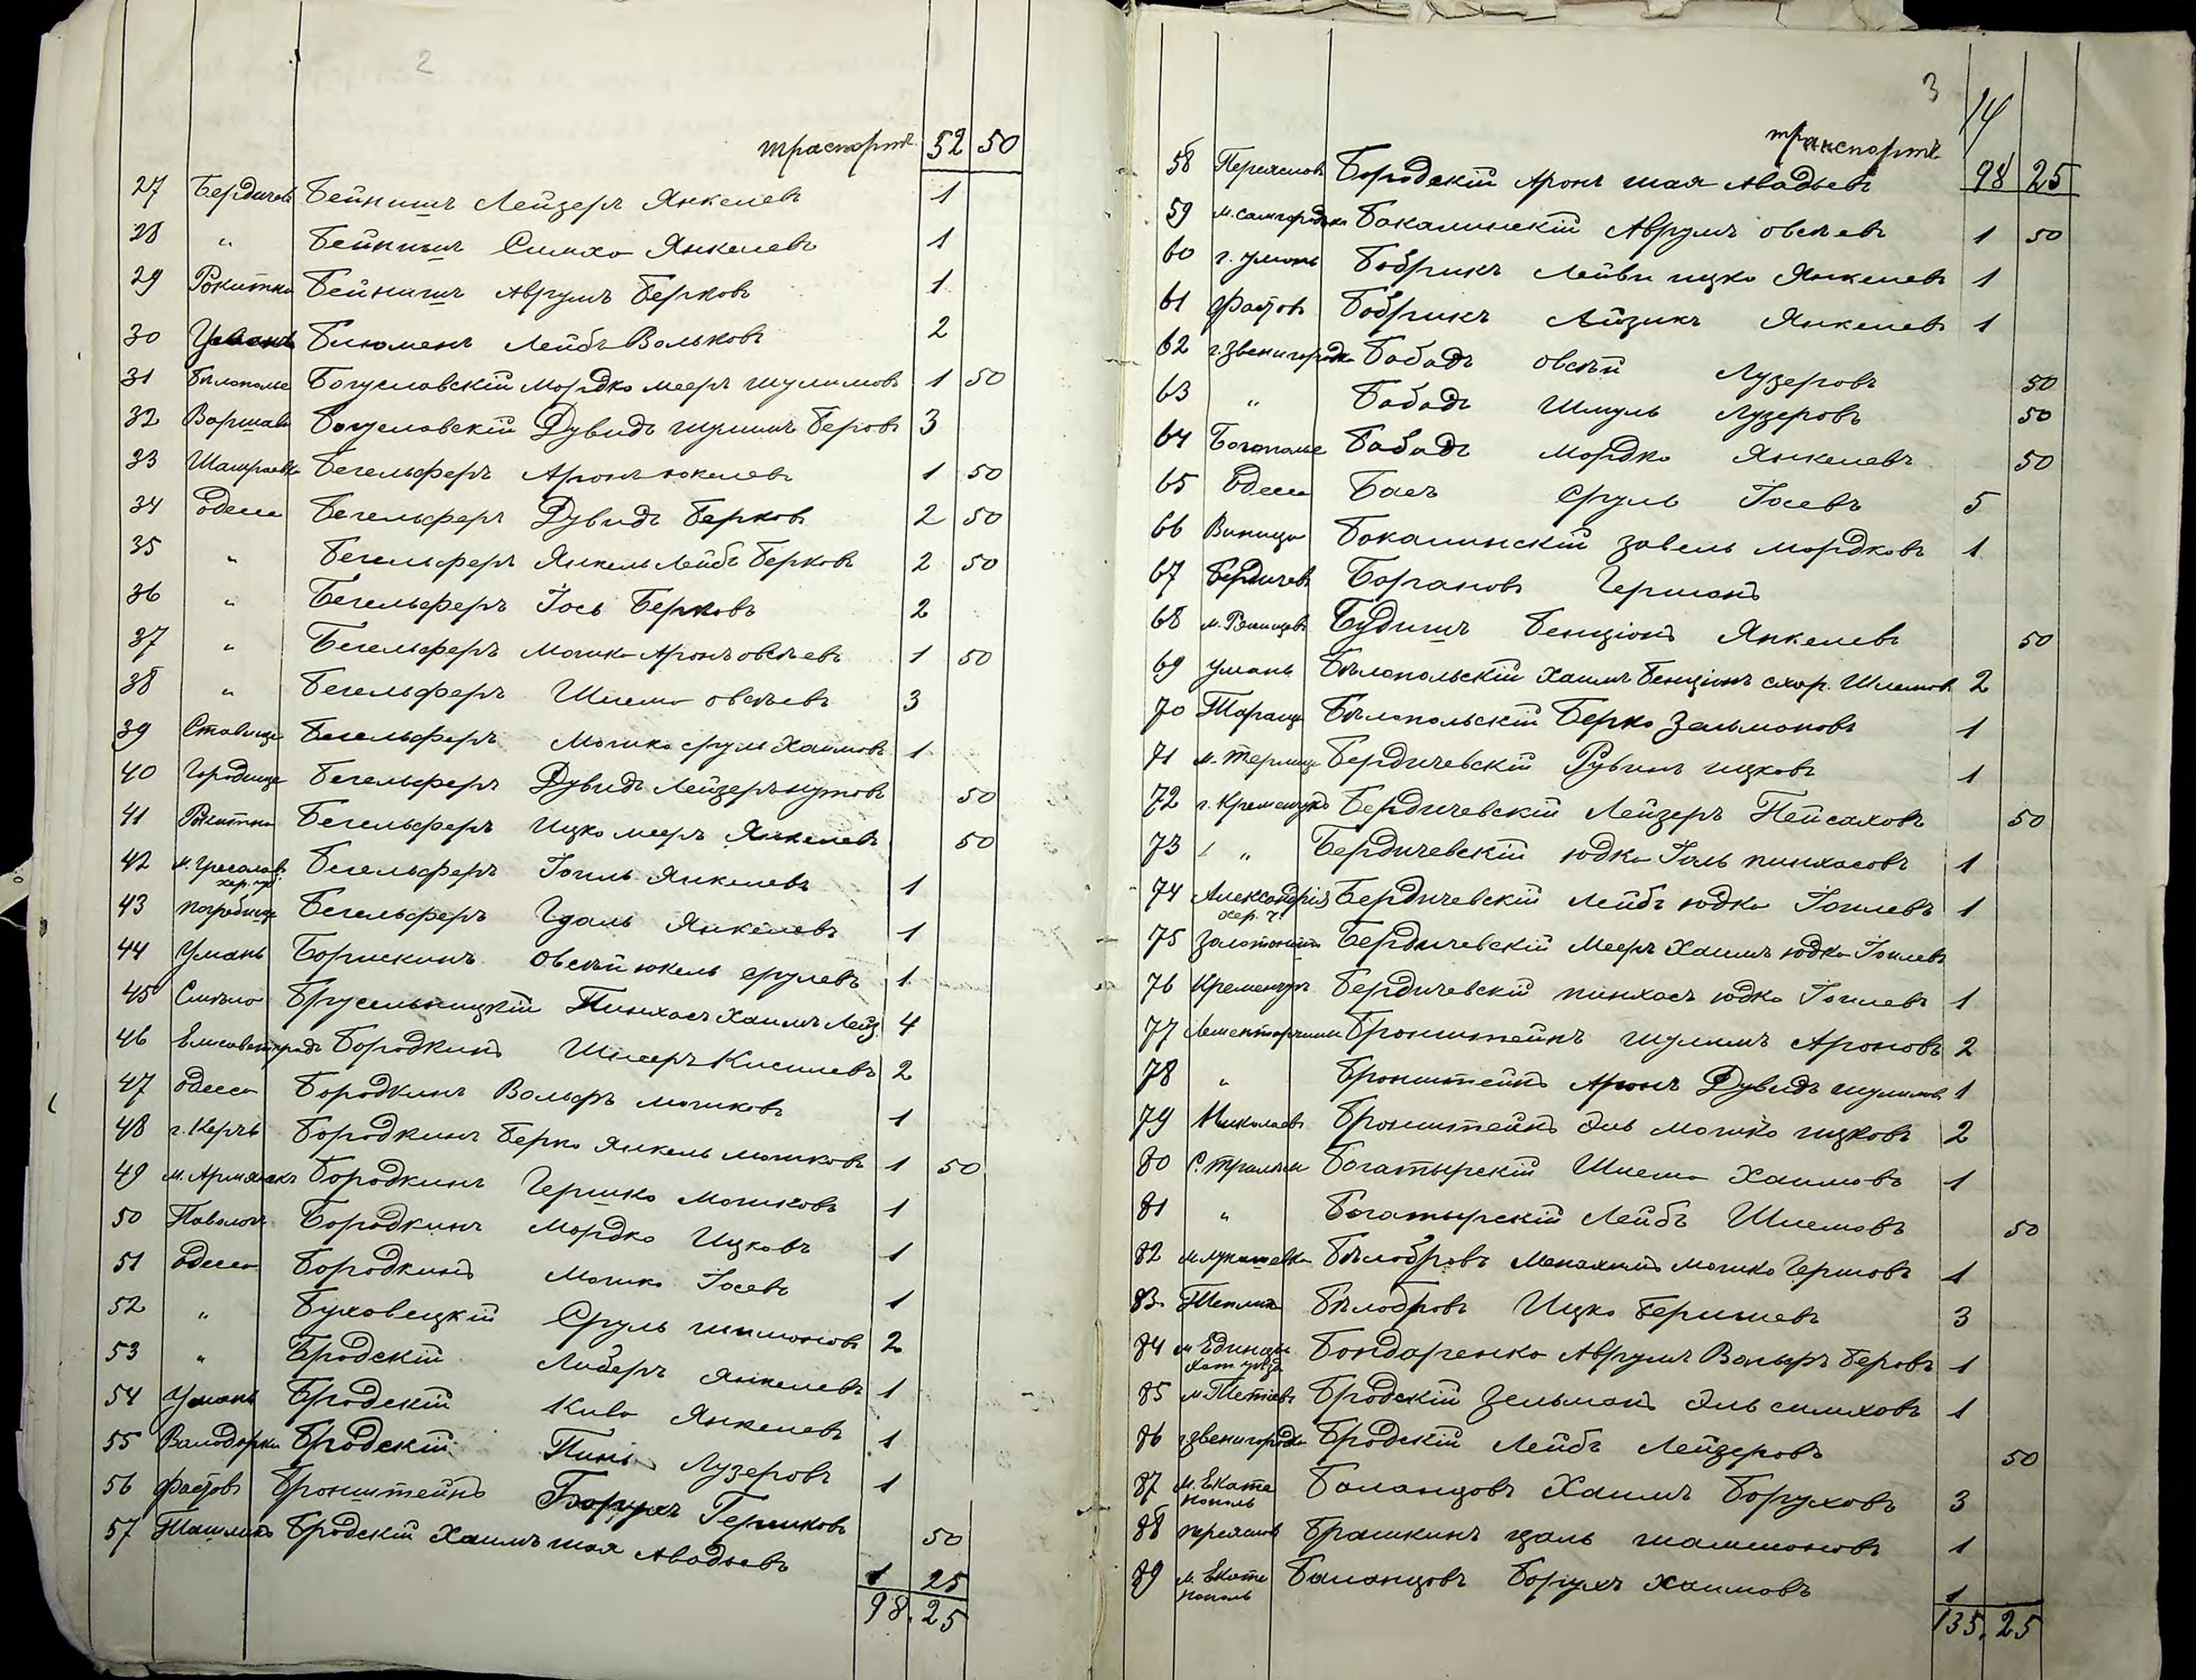 2
траспортъ 52 50
27 Бердичевъ Бейнишъ Лейзеръ Янкелевъ 1
28 " Бейнишъ Симха Янкелевъ 1
29 Рокитна Бейнишъ Аврумъ Берковъ 1
30 Умань Блюменъ Лейбъ Вольковъ 2
31 Бѣлополье Богуславскій Мордко Мееръ Шулимовъ 1 50
32 Варшава Богуславскій Дувидъ Шулимъ Беровъ 3
33 Шамраевка Бегельферъ Аронъ Юкелевъ 1 50
34 Одесса Бегельферъ Дувидъ Берковъ 2 50
35 " Бегельферъ Янкель Лейбъ Берковъ 2 50
36 " Бегельферъ Іось Берковъ 2
37 " Бегельферъ Мошко Аронъ Овсѣевъ 1 50
38 " Бегельферъ Шлема Овсѣевъ 3
39 Ставище Бегельферъ Мошко Сруль Хаимовъ 1
40 Городище Бегельферъ Дувидъ Лейзеръ Нутовъ 50
41 Рокитна Бегельферъ Ицко Мееръ Янкелевъ 50
42 м. хер. губ. Бегельферъ Іоиль Янкелевъ 1
43 Погребище Бегельферъ Гдаль Янкелевъ 1
44 Умань Борискинъ Овсѣй Юкель Срулевъ 1
45 Смѣла Брусельницкій Пинхасъ Хаимъ Лейз. 4
46 Елисаветградъ Бородкинъ Шлеръ Кисилевъ 2
47 Одесса Бородкинъ Вольфъ Мошковъ 1
48 г. Керчь Бородкинъ Берко Янкель Мошковъ 1 50
49 м. Армянскъ Бородкинъ Гершко Мошковъ 1
50 Паволочь Бородкинъ Мордко Ицковъ 1
51 Одесса Бородкинъ Мошко Іосевъ 1
52 " Буховецкій Сруль Шимоновъ 2
53 " Бродскій Либеръ Янкелевъ 1
54 Умань Бродскій Кива Янкелевъ 1
55 Володарка Бродскій Пинь Лузеровъ 1
56 Фастовъ Бронштейнъ Борухъ Гершковъ 50
57 Ташлыкъ Бродскій Хаимъ Шая Авадьевъ 1 25
98. 25
3
14
транспортъ 98 25
58 Переяславъ Бородскій Аронъ Шая Авадьевъ
59 м. Самгородокъ Бакалинскій Аврумъ Овсѣевъ 1 50
60 г. Умань Бобрикъ Лейви Ицко Янкелевъ 1
61 Фастовъ Бобрикъ Айзикъ Янкелевъ 1
62 г. Звенигородка Бабадъ Овсѣй Лузеровъ 50
63 " Бабадъ Шмуль Лузеровъ 50
64 Богополье Бабадъ Мордко Янкелевъ 50
65 Одесса Басъ Сруль Іосевъ 5
66 Виница Бокалинскій Завель Мордковъ 1
67 Бердичевъ Боргановъ Германъ
68 м. Будишъ Бенціонъ Янкелевъ 50
69 Умань Бѣлопольскій Хаимъ Бенціонъ Схор. Шлемов 2
70 Тараща Бѣлопольскій Берко Зельмановъ 1
71 м. Терлица Бердичевскій Рувинъ Ицковъ 1
72 г. Кременчугъ Бердичевскій Лейзеръ Пейсаховъ 50
73 " Бердичевскій Юдко Іоиль Пинхасовъ 1
74 Александрія хер. г. Бердичевскій Лейбъ Юдко Іоилевъ 1
75 Золотоноша Бердичевскій Мееръ Хаимъ Юдко Іоилевъ
76 Кременчугъ Бердичевскій Пинхасъ Юдко Іоилевъ 1
77 Бронштейнъ Шулимъ Ароновъ 2
78 " Бронштейнъ Аронъ Дувидъ Шулимов. 1
79 Николаевъ Бронштейнъ Эль Мошко Ицковъ 2
80 Богатырскій Шлема Хаимовъ 1
81 " Богатырскій Лейбъ Шлемовъ 50
82 м. Лукашевка Бѣлобровъ Менахимъ Мошко Гершовъ 1
83 Теплик Бѣлобровъ Ицко Беришевъ 3
84 м. Единцы Хот. уѣзда Бондаренко Аврумъ Вольфъ Беровъ 1
85 м. Тетіевъ Бродскій Зельманъ Эль Симховъ 1
86 г. Звенигородка Бродскій Лейбъ Лейзеровъ 50
87 м. Екатеринополь Баланцовъ Хаимъ Боруховъ 3
88 Переяславъ Брашкинъ Гдаль Шашмоновъ 1
89 м. Екатеринополь Баланцовъ Борухъ Хаимовъ 1
135. 25